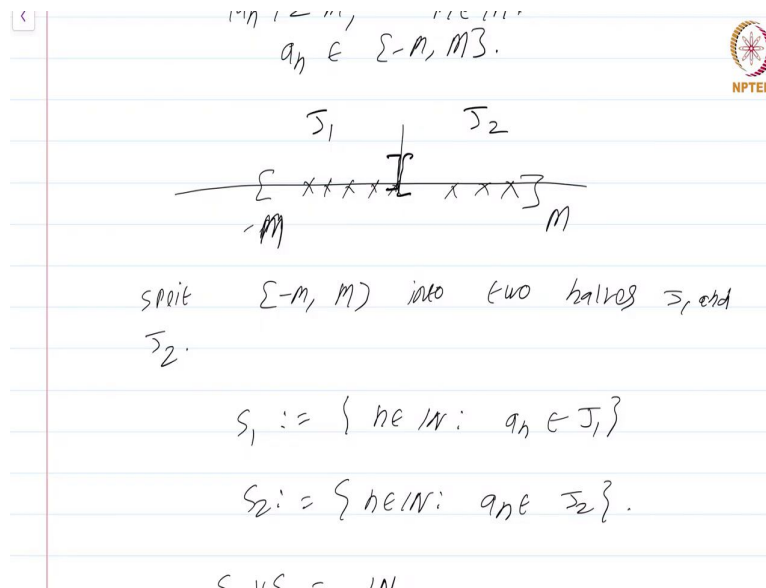 |a_n| ≤ M, n ∈ ℕ.
a_n ∈ [-M, M].
NPTEL
J_1 J_2
-M M
split [-M, M] into two halves J_1 and
J_2.
S_1 := { n ∈ ℕ : a_n ∈ J_1 }
S_2 := { n ∈ ℕ : a_n ∈ J_2 }.
S_1 ∪ S_2 = ℕ